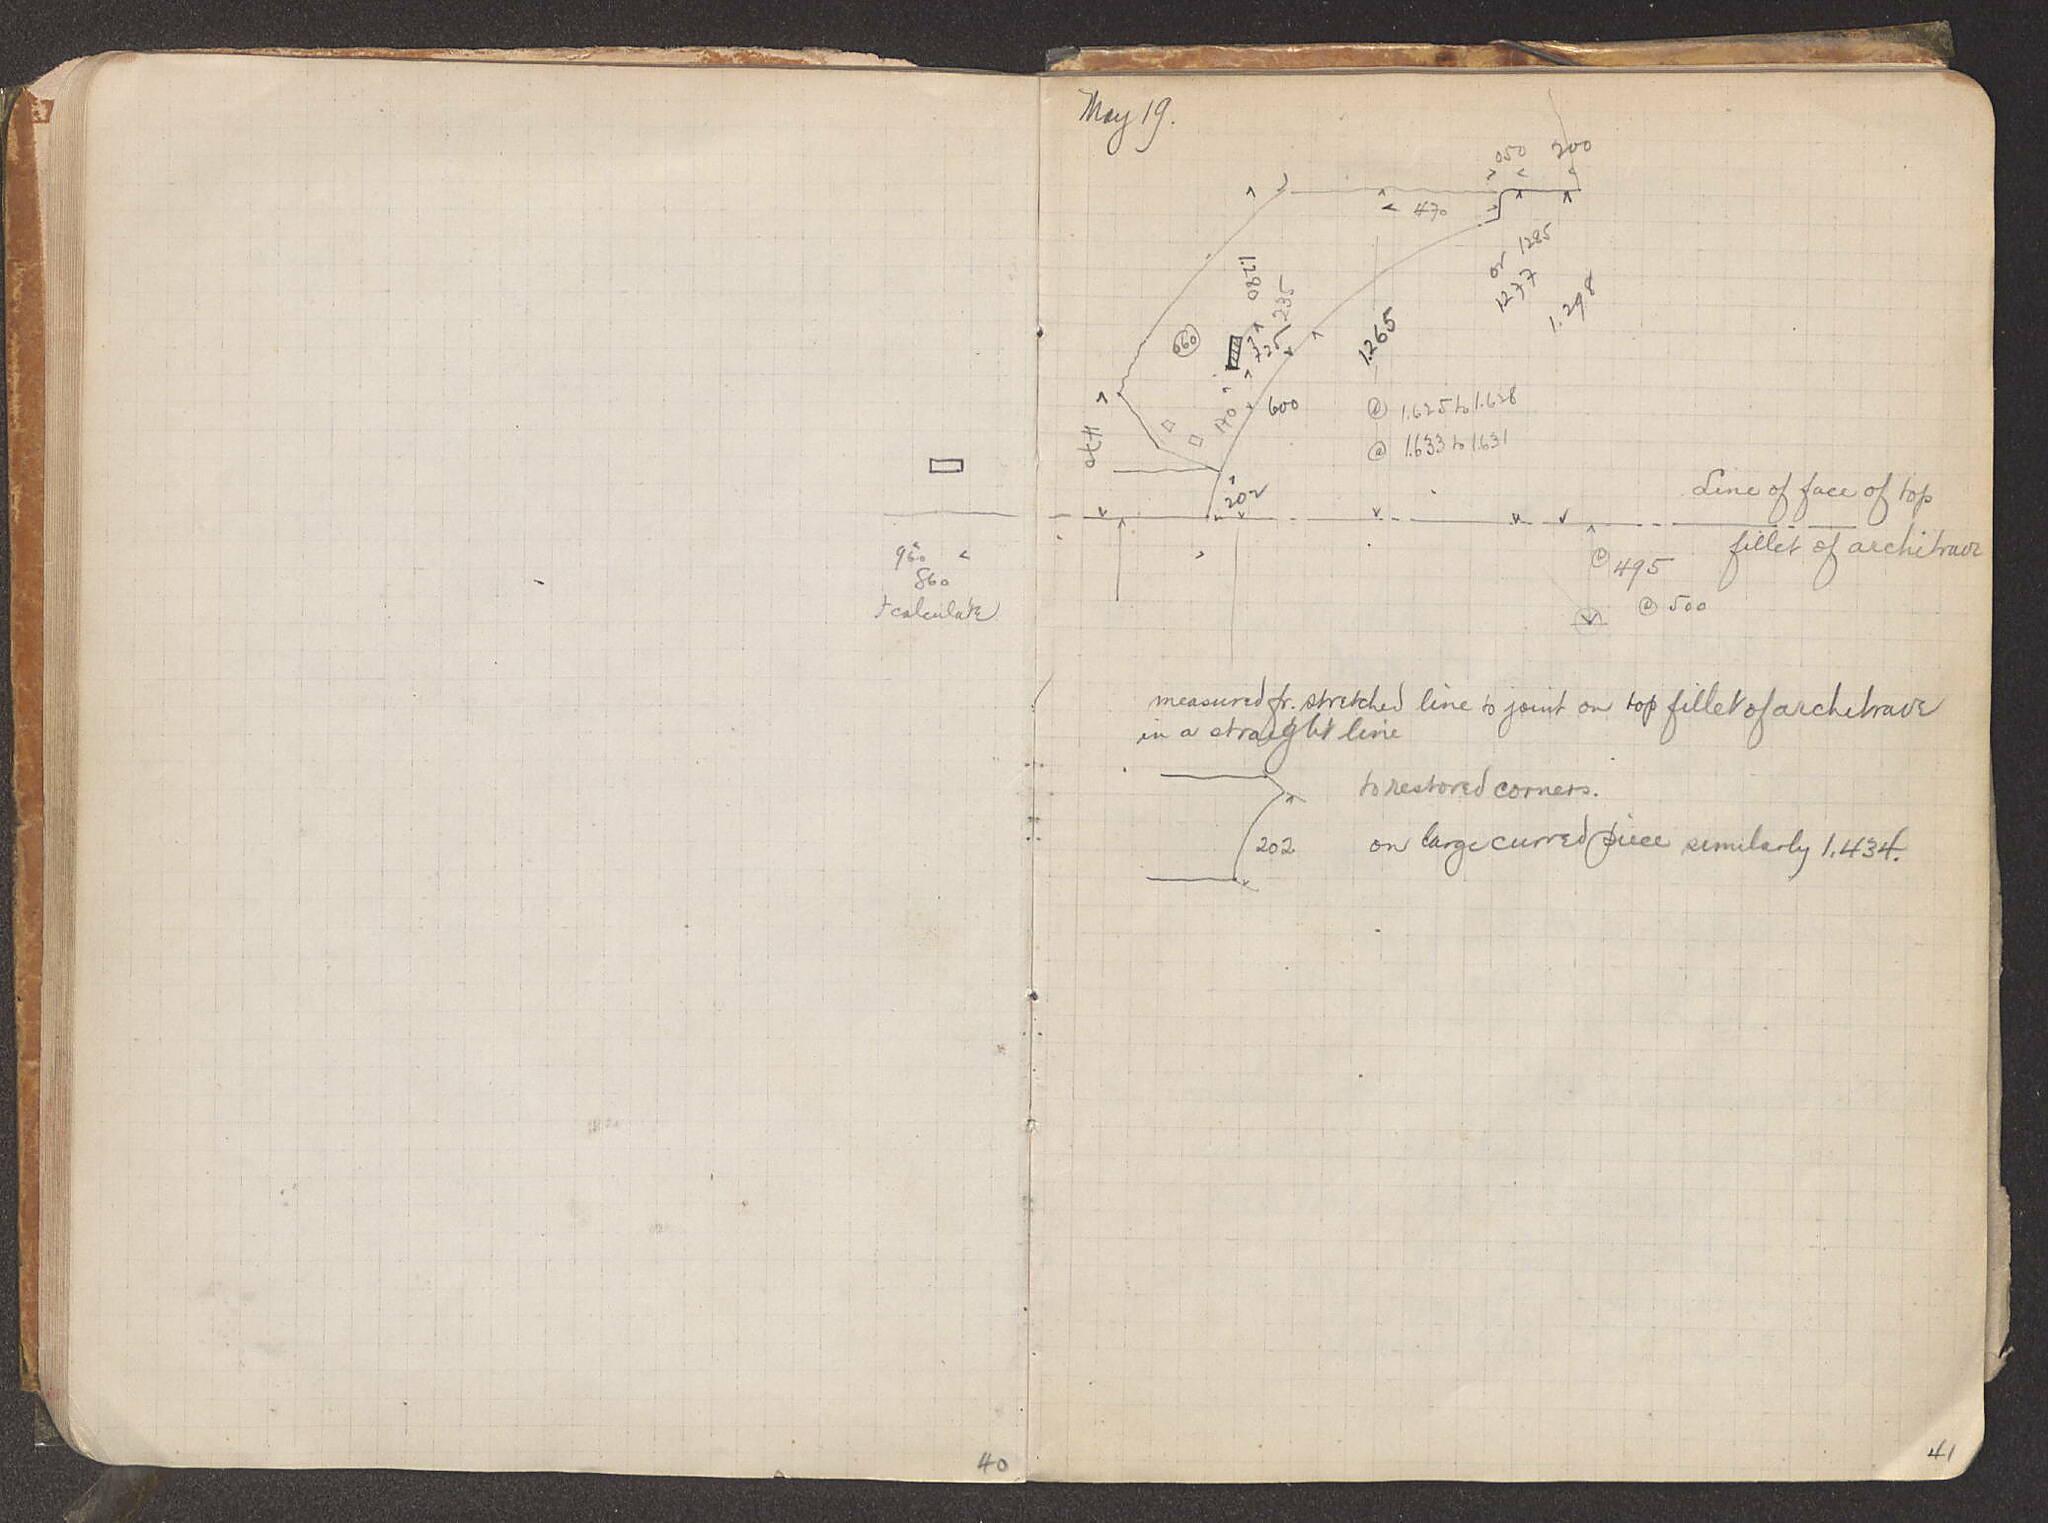 960
860
calculate
40
May 19.
050 200
470
or 1285
1277
1.298
1.265
1.280
235
725
660
170
600
@ 1.625 to 1.628
@ 1.633 to 1.631
202
Line of face of top
fillet of architrave
@ 495
@ 500
measured fr. stretched line to joint on top fillet of architrave
in a straight line
to restored corners.
202
on large curved piece similarly 1.434.
41